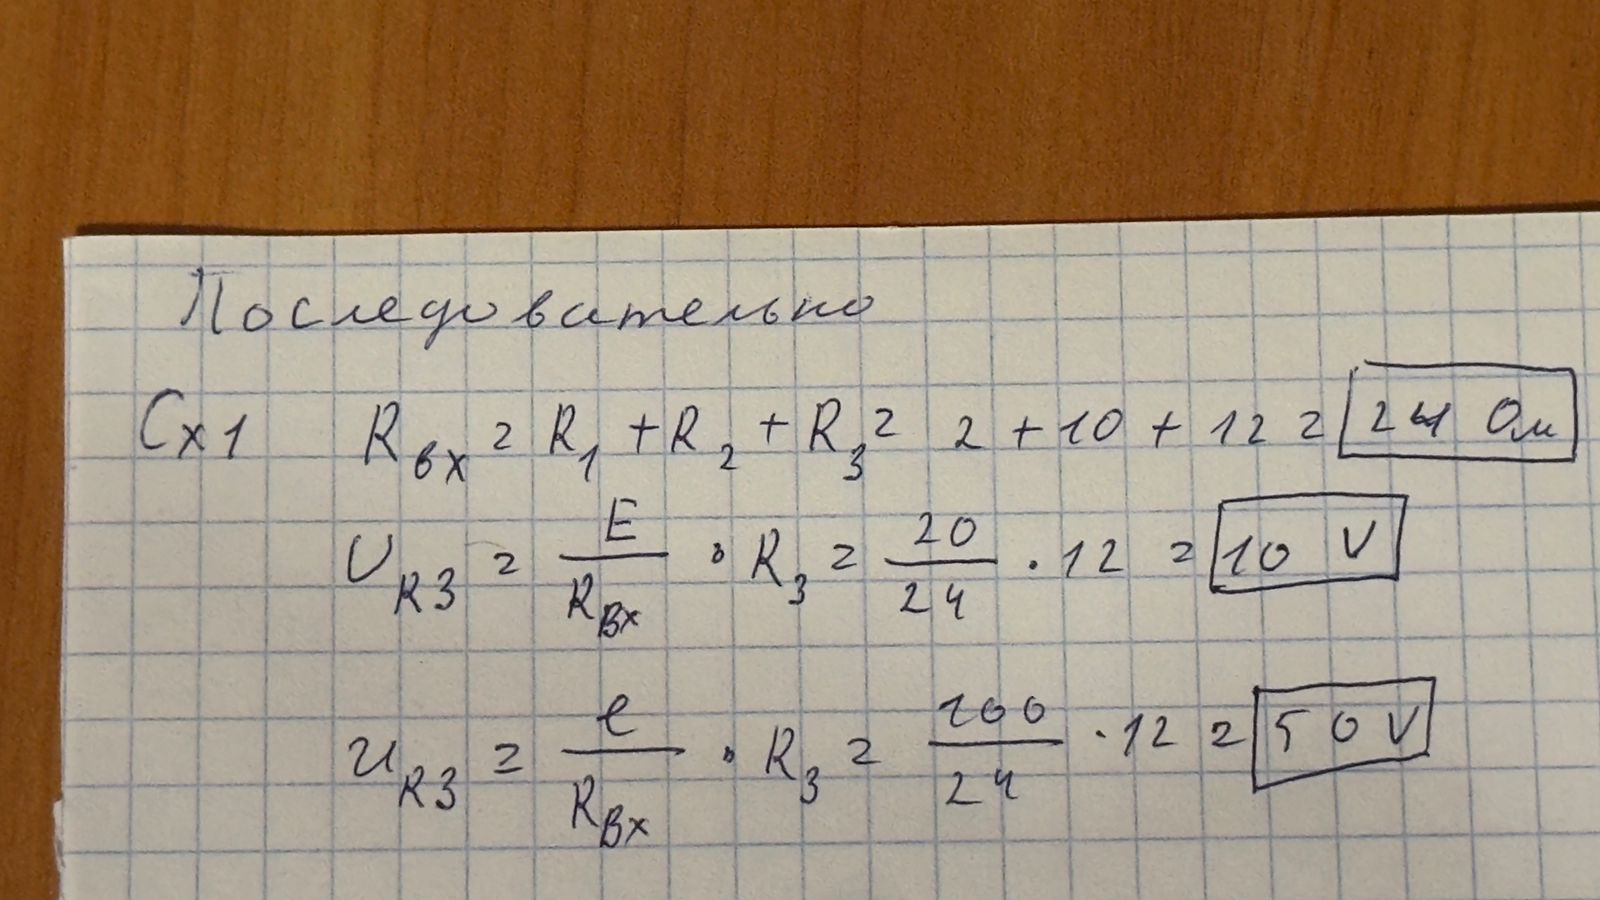 Последовательно
Сх1 Rвх = R1 + R2 + R3 = 2 + 10 + 12 = 24 Ом
UR3 = E/RВх · R3 = 20/24 · 12 = 10 V
uR3 = e/RВх · R3 = 100/24 · 12 = 50 V